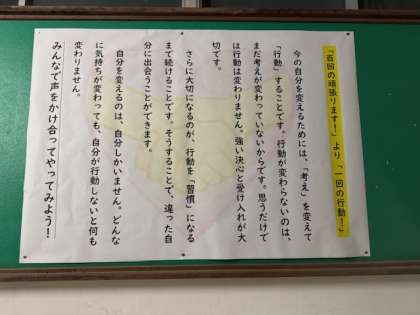 「百回の頑張ります！」より「一回の行動！」
今の自分を変えるためには、「考え」を変えて
「行動」することです。行動が変わらないのは、
まだ考えが変わっていないからです。思うだけで
は行動は変わりません。強い決心と受け入れが大
切です。
さらに大切になるのが、行動を「習慣」になる
まで続けることです。そうすることで、違った自
分に出会うことができます。
自分を変えるのは、自分しかいません。どんな
に気持ちが変わっても、自分が行動しないと何も
変わりません。
みんなで声をかけ合ってやってみよう！